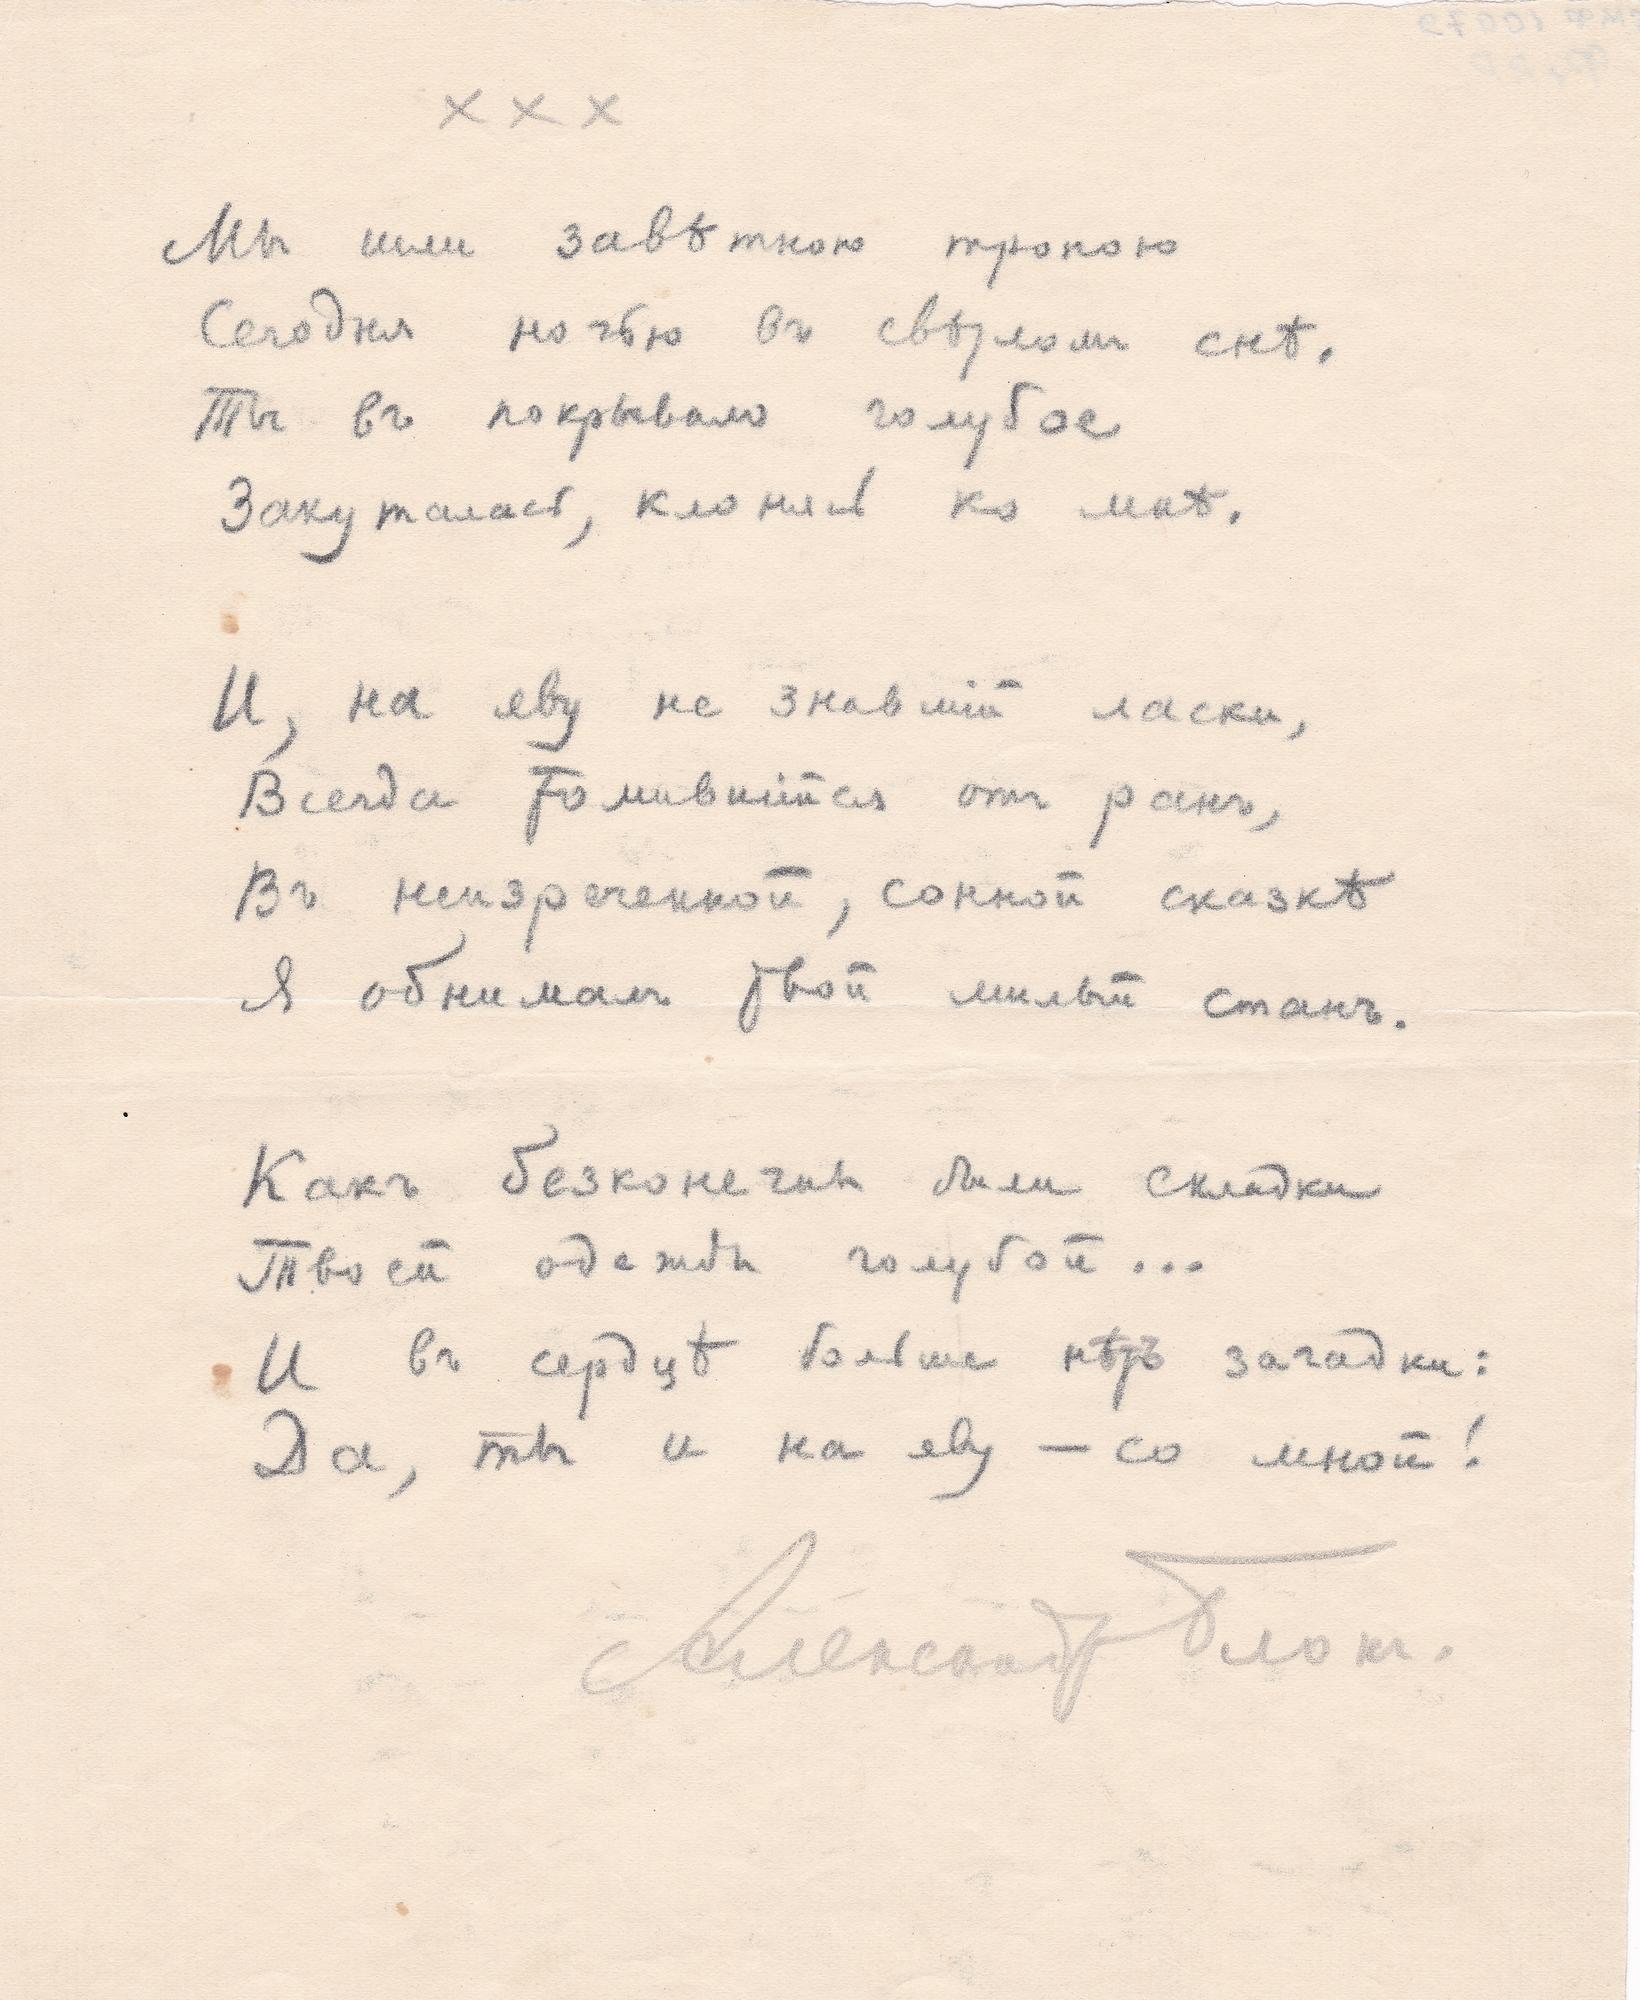 х х х
Мы шли завѣтною тропою
Сегодня ночью въ свѣтломъ снѣ.
Ты въ покрывало голубое
Закуталась, клонясь ко мнѣ.
И, на яву не знавшій ласки,
Всегда томившійся отъ ранъ,
Въ неизреченной, сонной сказкѣ
Я обнималъ твой милый станъ.
Какъ безконечны были складки
Твоей одежды голубой...
И въ сердцѣ больше нѣтъ загадки:
Да, ты и на яву — со мной!
Александр Блокъ.